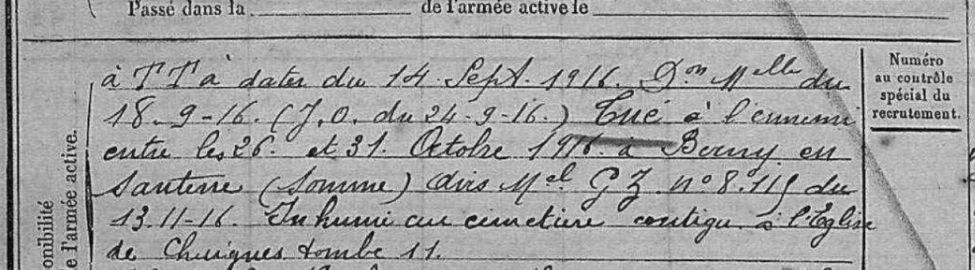 Passé dans la de l'armée active le
à T T à dater du 14 Sept. 1916. Don Melle du
18-9-16. (J.O. du 24-9-16.) Tué à l'ennemi
entre les 26. et 31. Octobre 1916 à Berny en
Santerre (Somme) avis Mel G Z. n° 8.115 du
13.11-16. Inhumé au cimetière contigu à l'Eglise
de Chuignes tombe 11.
Numéro
au contrôle
spécial du
recrutement.
onibilité
e l'armée active.